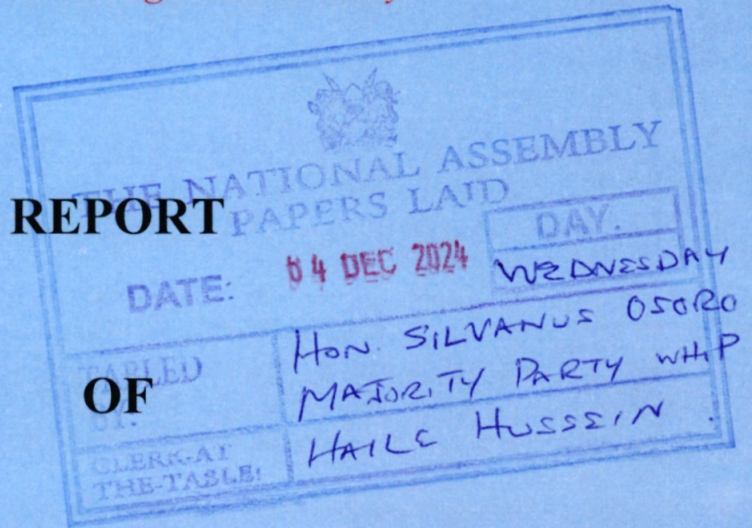 THE NATIONAL ASSEMBLY
REPORT
PAPERS LAID
DAY.
DATE: 04 DEC 2024 WEDNESDAY
TABLED
BY:
HON. SILVANUS OSORO
MAJORITY PARTY WHIP
OF
CLERK-AT
THE-TABLE:
HAILE HUSSEIN